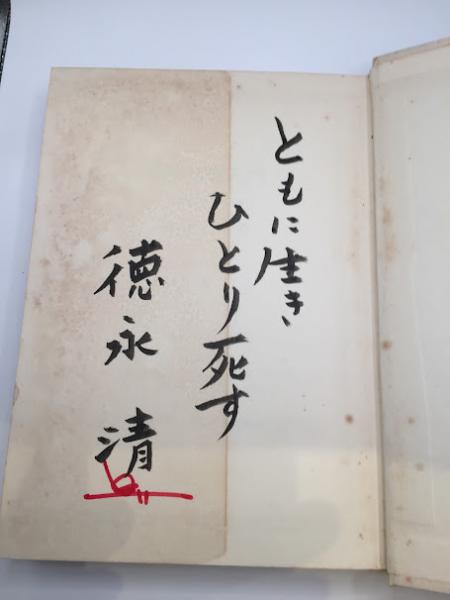 ともに生き
ひとり死す
徳永清